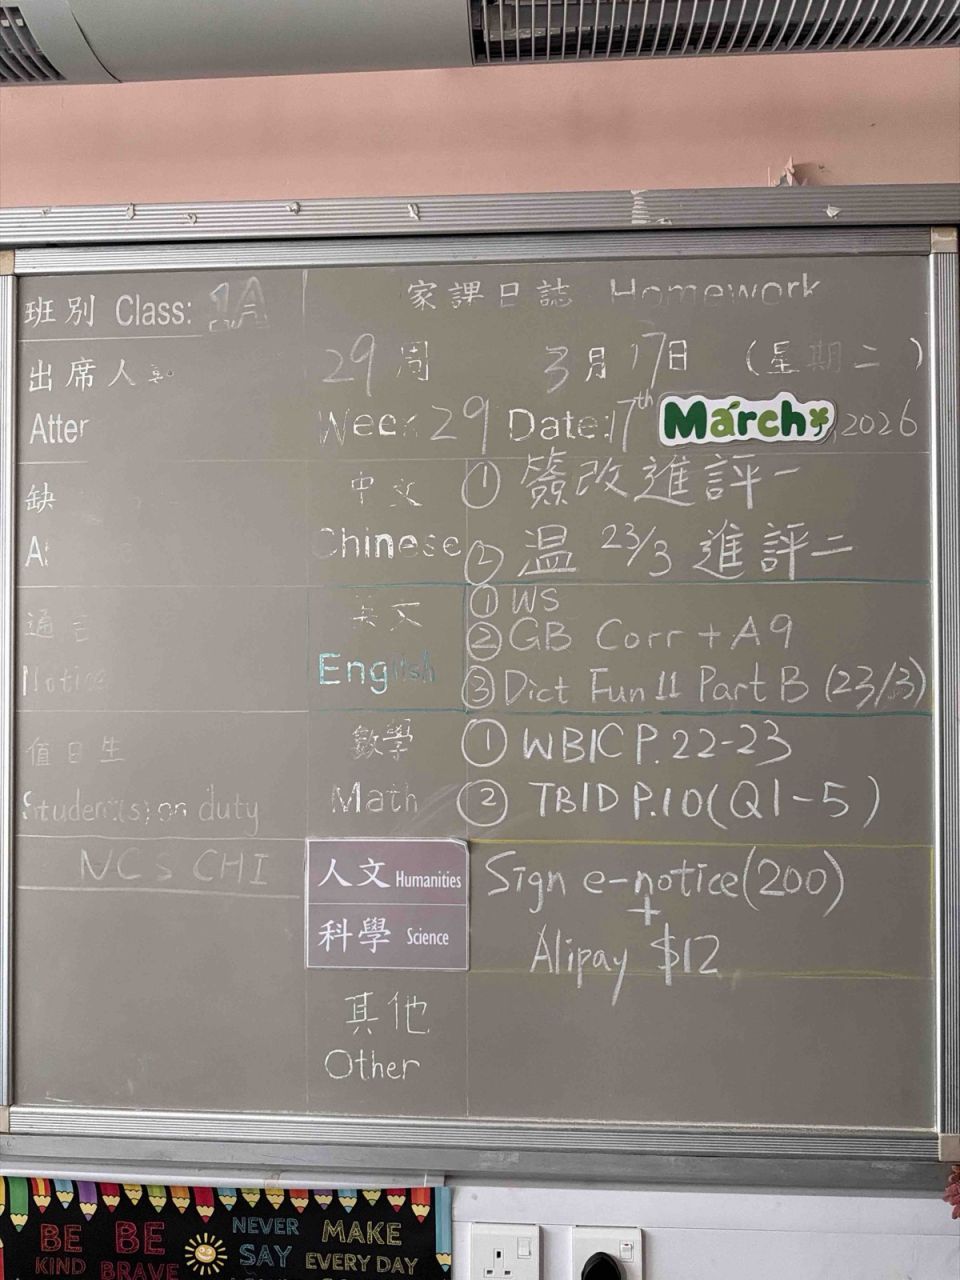 班別 Class: 1A
家課日誌 Homework
出席人
Atter
29周 3月17日 (星期二)
Week 29 Date: 17th March, 2026
缺
中文
Chinese
① 簽改進評一
② 温 23/3 進評二
通告
Notice
英文
English
① WS
② GB Corr + A9
③ Dict Fun 11 Part B (23/3)
值日生
Student(s) on duty
數學
Math
① WBIC P.22-23
② TBID P.10 (Q1-5)
NCS CHI
人文 Humanities
科學 Science
Sign e-notice (200)
+
Alipay $12
其他
Other
BE KIND
BE BRAVE
NEVER SAY
MAKE EVERY DAY